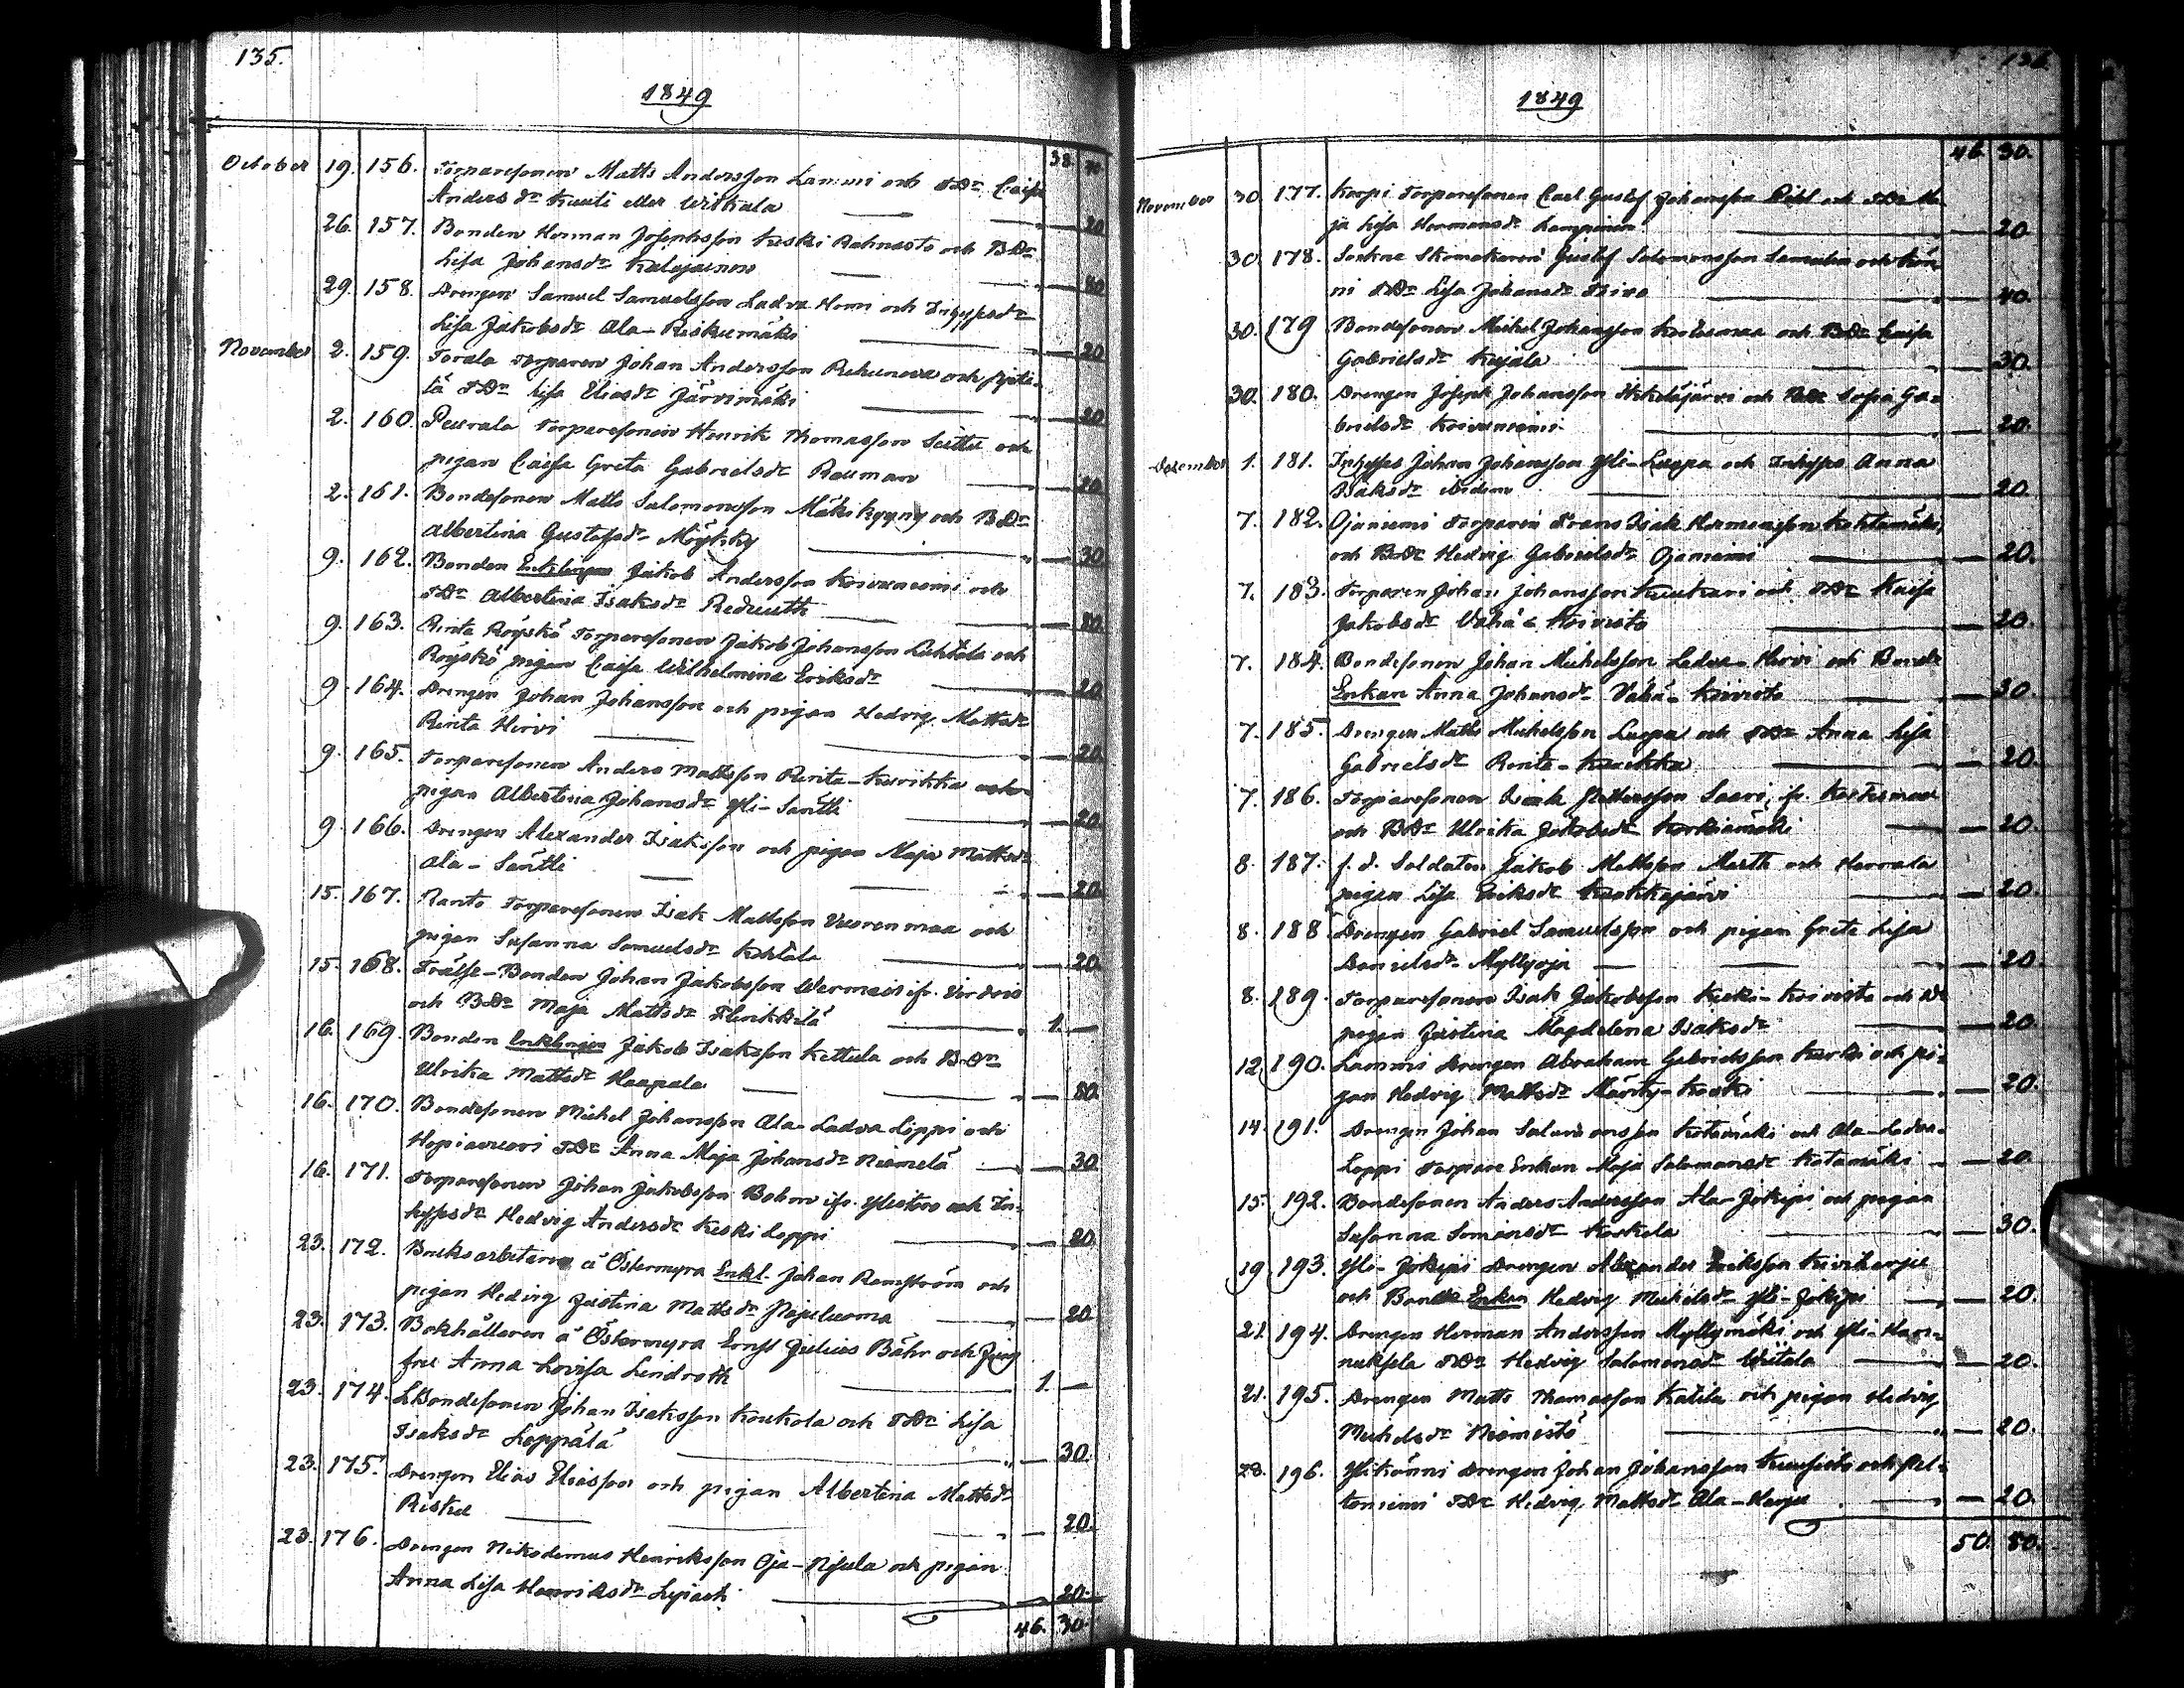 135.
1849
38.
October 19. 156. Torparesonen Matts Andersson Lammi och TDr Caisa
Anders dr Kuuti eller Witkala — 20
26. 157. Bonden Herman Josephsson Keski Rahnasto och BDr
Lisa Johansdr Kalajainen — 80
29. 158. Drengen Samuel Samuelsson Ladva Homi och Inhypsdr
Lisa Jakobsdr Ala-Reskumäki — 20
November 2. 159. Torala Torparen Johan Andersson
TDr Lisa Eliasdr Järvimäki — 20
2. 160. Peurala Torparesonen Henrik Thomasson och
pigan Caisa Greta Gabrielsdr Rauman — 20
2. 161. Bondesonen Matts Salomonsson Mäkikyyny och BDr
Albertina Gustafsdr Möykky — 30
9. 162. Bonden Enklingen Jakob Andersson Koivuniemi och
TDr Albertina Isaksdr — 80
9. 163. Rinta Röyskö Torparesonen Jakob Johansson Luhtala och
Röyskö pigan Caisa Wilhelmina Eriksdr — 20
9. 164. Drengen Johan Johansson och pigan Hedvig Mattsdr
Rinta Hirvi — 20
9. 165. Torparesonen Anders Mattsson Rinta-Kurikka och
pigan Albertina Johansdr Yli-Säntti — 20
9. 166. Drengen Alexander Isaksson och pigan Maja Mattsdr
Ala-Säntti — 20
15. 167. Ranto Torparesonen Isak Mattsson Vuorenmaa och
pigan Susanna Samuelsdr Kohtala — 20
15. 168. Frälse-Bonden Johan Jakobsson Wermais ifr. Virdois
och BDr Maja Mattsdr — 1. —
16. 169. Bonden Enklingen Jakob Isaksson Kattula och BDr
Ulrika Mattsdr Haapala — 80
16. 170. Bondesonen Michel Johansson Ala-Ladva Lippi och
TDr Anna Maja Johansdr Niemelä — 30
16. 171. Torparesonen Johan Jakobsson Bohm ifr. Ylistaro och In-
hypsdr Hedvig Andersdr Keski Loppi — 20
23. 172. Bruksarbetaren å Östermyra Enkl. Johan Renström och
pigan Hedvig Justina Mattsdr Pajuluoma — 20.
23. 173. Bokhållaren å Östermyra Ernst Julius Bähr och Jung
fru Anna Lovisa Lindroth — 1. —
23. 174. LBondesonen Johan Isaksson Koukola och TDr Lisa
Isaksdr Leppälä — 30.
23. 175. Drengen Elias Eliasson och pigan Albertina Mattsdr
Risku — 20.
23. 176. Drengen Nikodemus Henriksson Oja-Nisula och pigan
Anna Lisa Henriksdr — 20.
46. 30.
136.
1849
46. 30.
November 30 177. Korpi Torparesonen Carl Gustaf Johansson och TDr Ma-
ja Lisa Hermansdr Lampinen — 20
30. 178. Sockne Skomakaren Gustaf Salomonsson och Kön-
ni TDr Lisa Johansdr — 40.
30. 179 Bondesonen Michel Johansson Koskesmaa och BDr Caisa
Gabrielsdr Kujala — 30.
30. 180. Drengen Joseph Johansson och BDr Sofia Ga-
brielsdr Koivuniemi — 20.
December 1. 181. Inhyses Johan Johansson Yli-Luopa och Inhyses Anna
Isaksdr ibidem — 20
7. 182. Ojaniemi Torparen Frans Isak Hermansson Kohtamäki,
och BDr Hedvig Gabrielsdr Ojaniemi — 20.
7. 183. Torparen Johan Johansson och TDr Kaisa
Jakobsdr Vähä-Koivisto — 20.
7. 184. Bondesonen Johan Michelsson Ladva-Hirvi och Bonde
Enkan Anna Johansdr Vähä-Koivisto — 30.
7. 185. Drengen Matts Michelsson Luopa och TDr Anna Lisa
Gabrielsdr Rinta-Kurikka — 20.
7. 186. Torparesonen Isak Saari, ifr. Kortesmaa
och BDr Ulrika Jakobsdr Korkiamäki — 20
8. 187. f.d. Soldaten Jakob Mattsson och Herrala
pigan Lisa Eriksdr — 20.
8. 188 Drengen Gabriel Samuelsson och pigan Greta Lisa
Danielsdr Myllyoja — 20.
8. 189. Torparesonen Isak Jakobsson Keski-Koivisto och
pigan Justina Magdalena Isaksdr — 20.
12 190. Lammis drengen Abraham Gabrielsson Kurki och pi-
gan Hedvig Mattsdr Mänty-Koski — 20.
14. 191. Drengen Johan Salomonsson Kotamäki och Ala-Ladva-
Loppi Torpare Enkan Maja Salomonsdr Kotamäki — 20.
15. 192. Bondesonen Anders Andersson Ala-Jokipi och pigan
Susanna Simonsdr Koskela — 30.
19. 193. Yli-Jokipi drengen Alexander Eriksson Kiviharju
och Bonde Enkan Hedvig Michelsdr Yli-Jokipi — 20.
21. 194. Drengen Herman Andersson Myllymäki och Yli-Han-
nuksela TDr Hedvig Salomonsdr Uitala — 20.
21. 195. Drengen Matts Thomasson Katila och pigan Hedvig
Michelsdr Niemistö — 20.
28. 196. Ylikönni drengen Johan Johansson Kuusisto och Pel-
toniemi TDr Hedvig Mattsdr Ala-Harju — 20.
50. 80.